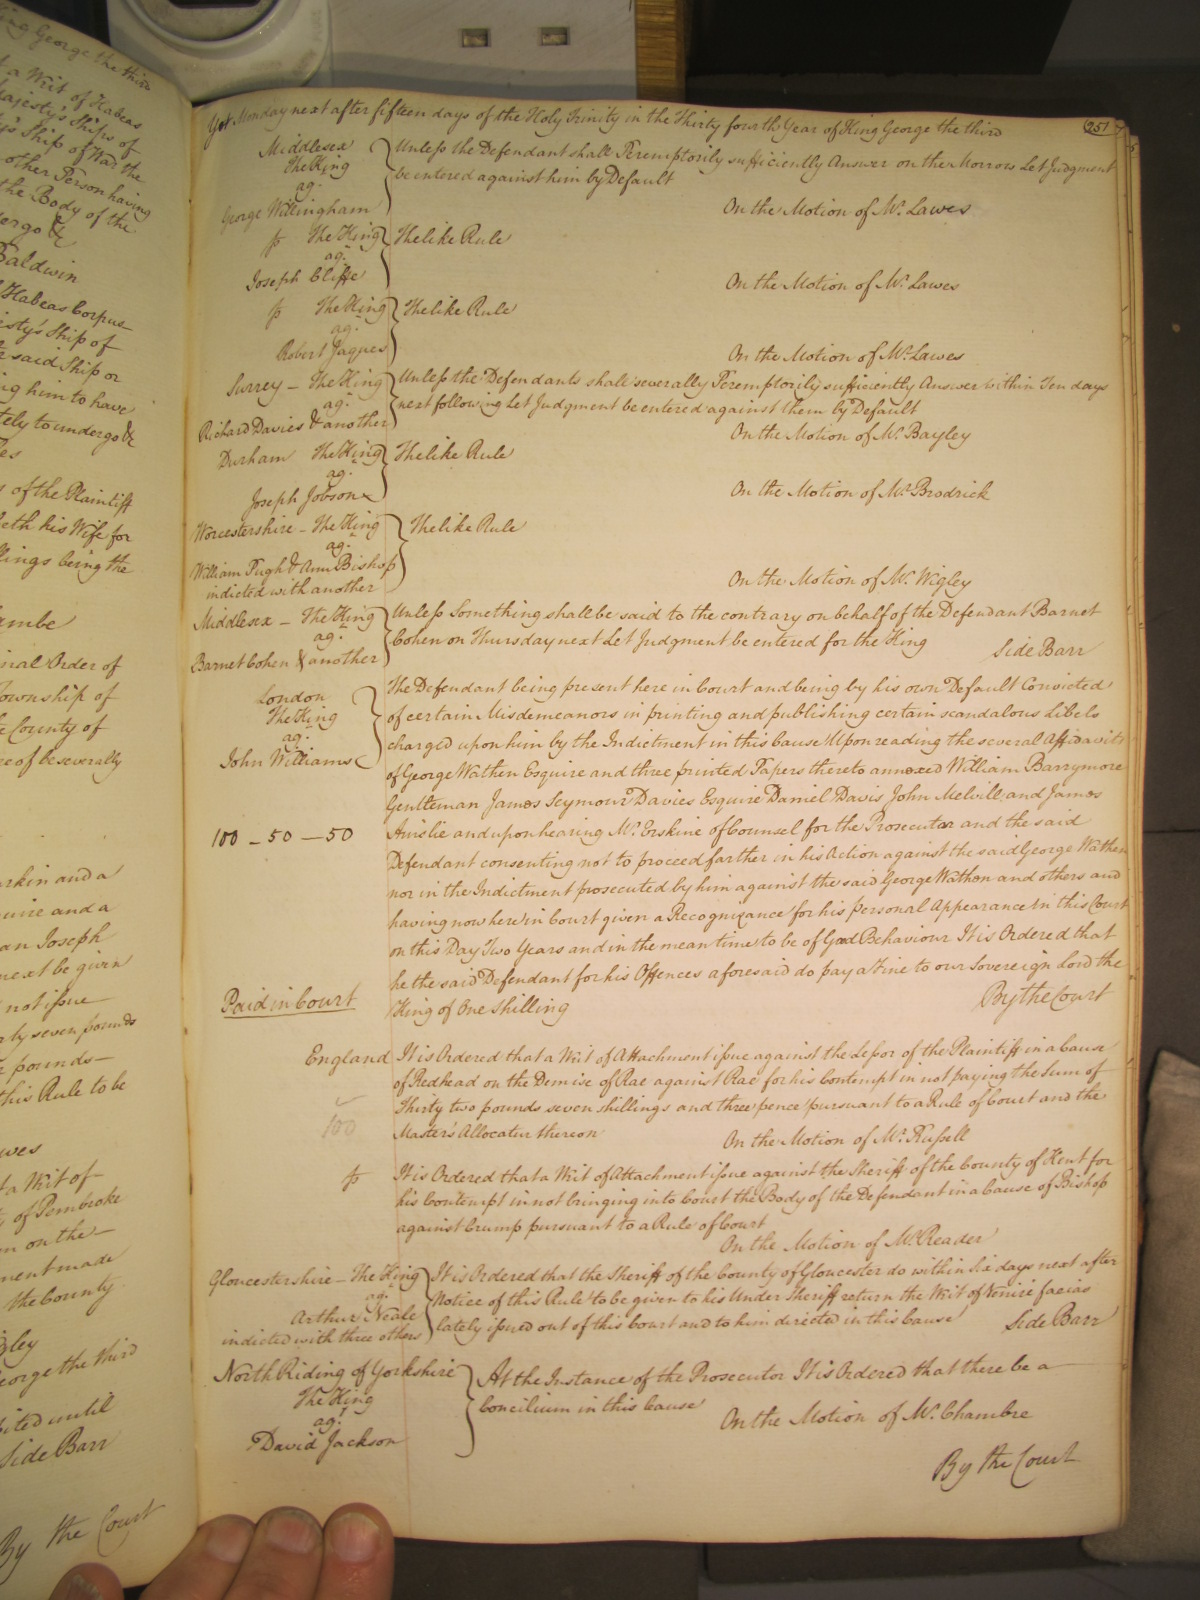 King George the third
t a Writ of Habeas
Majesty's Ships of
y's Ship of War the
other Person having
the Body of the
dergo &c
Baldwin
f Habeas Corpus
esty's Ship of
r said Ship or
ing him to have
tely to undergo &c
les
s of the Plaintiff
beth his Wife for
llings being the
ambe
inal Order of
Township of
e County of
re of be severally
arkin and a
quire and a
an Joseph
next be given
not issue
rty seven pounds
r pounds
this Rule to be
wes
t a Writ of
y of Pembroke
on on the
ment made
the County
gley
George the third
ited until
Side Barr
By the Court
Yet Monday next after fifteen days of the Holy Trinity in the Thirty fourth Year of King George the third
251
Middlesex
The King
ag.t
George Willingham
Unless the Defendant shall Peremptorily sufficiently Answer on the Morrow Let Judgment
be entered against him by Default
On the Motion of Mr. Lawes
The King
ag.t
Joseph Cliffe
The like Rule
On the Motion of Mr. Lawes
The King
ag.t
Robert Jaques
The like Rule
On the Motion of Mr. Lawes
Surrey – The King
ag.t
Richard Davies & another
Unless the Defendants shall severally Peremptorily sufficiently Answer within Ten days
next following Let Judgment be entered against them by Default
On the Motion of Mr. Bayley
Durham The King
ag.t
Joseph Jobson
The like Rule
On the Motion of Mr. Brodrick
Worcestershire – The King
ag.t
William Pugh & Ann Bishop
indicted with another
The like Rule
On the Motion of Mr. Wigley
Middlesex – The King
ag.t
Barnet Cohen & another
Unless Something shall be said to the contrary on behalf of the Defendant Barnet
Cohen on Thursday next Let Judgment be entered for the King
Side Barr
London
The King
ag.t
John Williams
The Defendant being present here in Court and being by his own Default Convicted
of certain Misdemeanors in printing and publishing certain scandalous Libels
charged upon him by the Indictment in this Cause Upon reading the several Affidavits
of George Wathen Esquire and three printed Papers thereto annexed William Barrymore
Gentleman James Seymour Davies Esquire Daniel Davis John Melvill and James
100 – 50 – 50
Ainslie and upon hearing Mr. Erskine of Counsel for the Prosecutor and the said
Defendant consenting not to proceed farther in his Action against the said George Wathen
nor in the Indictment prosecuted by him against the said George Wathen and others and
having now here in Court given a Recognizance for his personal Appearance in this Court
on this Day Two Years and in the mean time to be of Good Behaviour It is Ordered that
he the said Defendant for his Offences aforesaid do pay a Fine to our Sovereign Lord the
Paid in Court
King of One Shilling
By the Court
England
It is Ordered that a Writ of Attachment issue against the Lessor of the Plaintiff in a Cause
of Redhead on the Demise of Rae against Rae for his Contempt in not paying the Sum of
Thirty two pounds seven shillings and three pence pursuant to a Rule of Court and the
100
Master's Allocatur thereon
On the Motion of Mr. Russell
It is Ordered that a Writ of Attachment issue against the Sheriff of the County of Kent for
his Contempt in not bringing into Court the Body of the Defendant in a Cause of Bishop
against Crump pursuant to a Rule of Court
On the Motion of Mr. Reader
Gloucestershire – The King
ag.t
Arthur Neale
indicted with three others
It is Ordered that the Sheriff of the County of Gloucester do within Six days next after
Notice of this Rule to be given to his Under Sheriff return the Writ of Venire facias
lately issued out of this Court and to him directed in this Cause
Side Barr
North Riding of Yorkshire
The King
ag.t
David Jackson
At the Instance of the Prosecutor It is Ordered that there be a
Concilium in this Cause
On the Motion of Mr. Chambre
By the Court